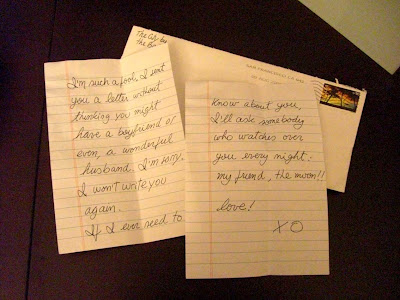 The City by
the Bay
I'm such a fool, I sent
you a letter without
thinking you might
have a boyfriend or
even, a wonderful
husband. I'm sorry.
I won't write you
again.
If I ever need to
know about you,
I'll ask somebody
who watches over
you every night:
my friend, the moon!!
love!
XO